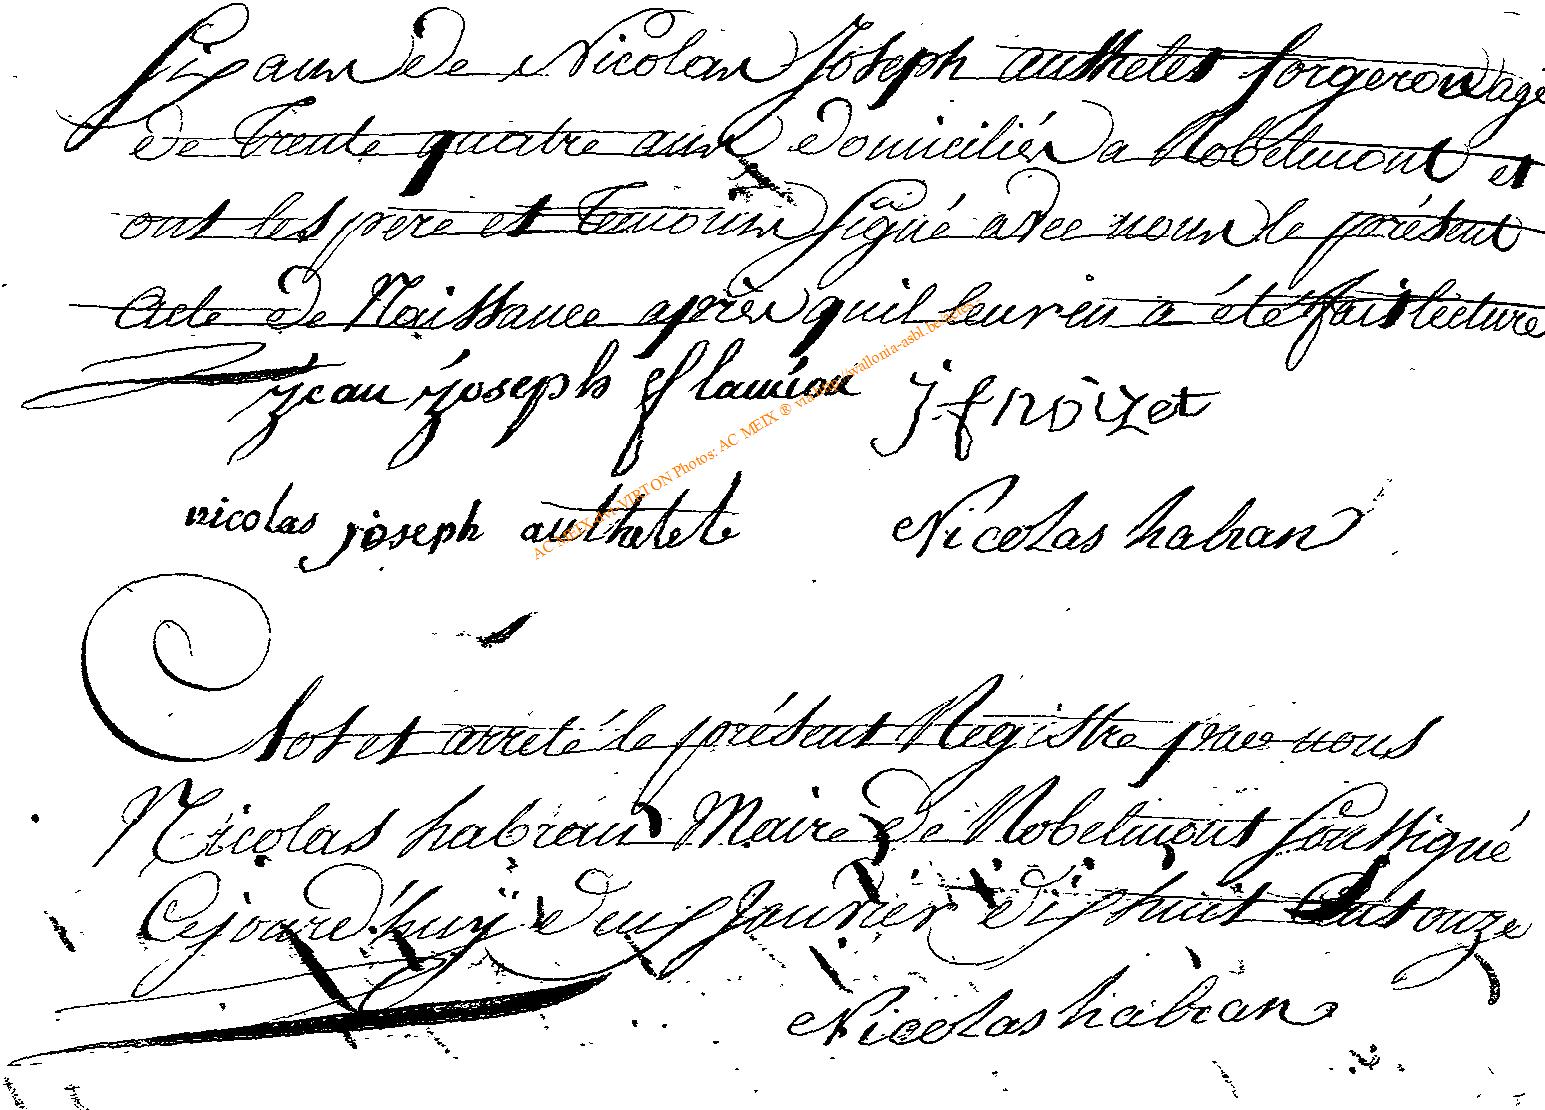 six ans et de Nicolas Joseph authelet forgeron agé
de Trente quatre ans domicilié a Robelmont et
ont les pere et Temoins signé avec nous le présent
acte de Naissance après quil leur en a été fait lecture
jean joseph flamion j f noizet
nicolas joseph authelet Nicolas habran
Clot et arreté le présent Registre par nous
Nicolas habran Maire de Robelmont soussigné
Cejourd'huÿ deux Janvier dix huit Cent onze
Nicolas habran
AC MEIX-dvt-VIRTON Photos: AC MEIX ® via http://wallonia-asbl.be